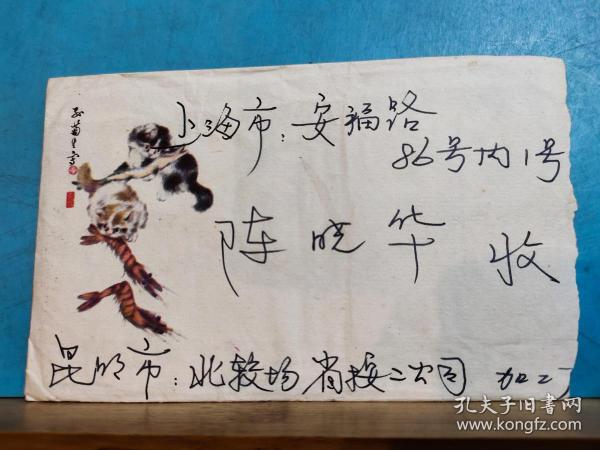 孙菊生写
上海市：安福路
86号内1号
陈晓华 收
昆明市：北较场 省安二公司
孔夫子旧书网
www.kongfz.com